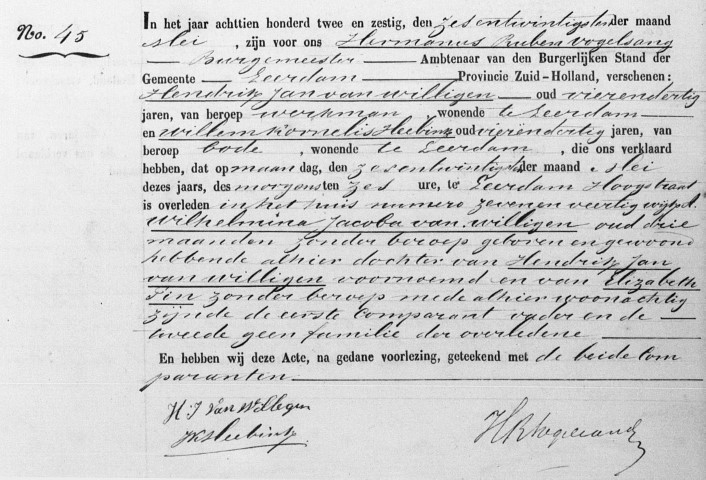 No. 45
In het jaar achttien honderd twee en zestig, den zesentwintigsten der maand
Mei, zijn voor ons Hermanus Ruben Vogelsang
Burgemeester Ambtenaar van den Burgerlijken Stand der
Gemeente Leerdam Provincie Zuid-Holland, verschenen:
Hendrik Jan van Willigen oud vierendertig
jaren, van beroep werkman, wonende te Leerdam
en Willem Kornelis Heebink oud vierendertig jaren, van
beroep bode, wonende te Leerdam, die ons verklaard
hebben, dat op maandag, den zesentwintigsten der maand Mei
dezes jaars, des morgens ten zes ure, te Leerdam Hoogstraat
is overleden in het huis numero zevenenveertig wijk A.
Wilhelmina Jacoba van Willigen oud drie
maanden zonder beroep geboren en gewoond
hebbende alhier dochter van Hendrik Jan
van Willigen voornoemd en van Elizabeth
Pin zonder beroep mede alhier woonachtig
zijnde de eerste Comparant vader en de
tweede geen familie der overledene
En hebben wij deze Acte, na gedane voorlezing, geteekend met de beide Com
paranten
H. J van Willegen
WKHeebink
HRVogelsang